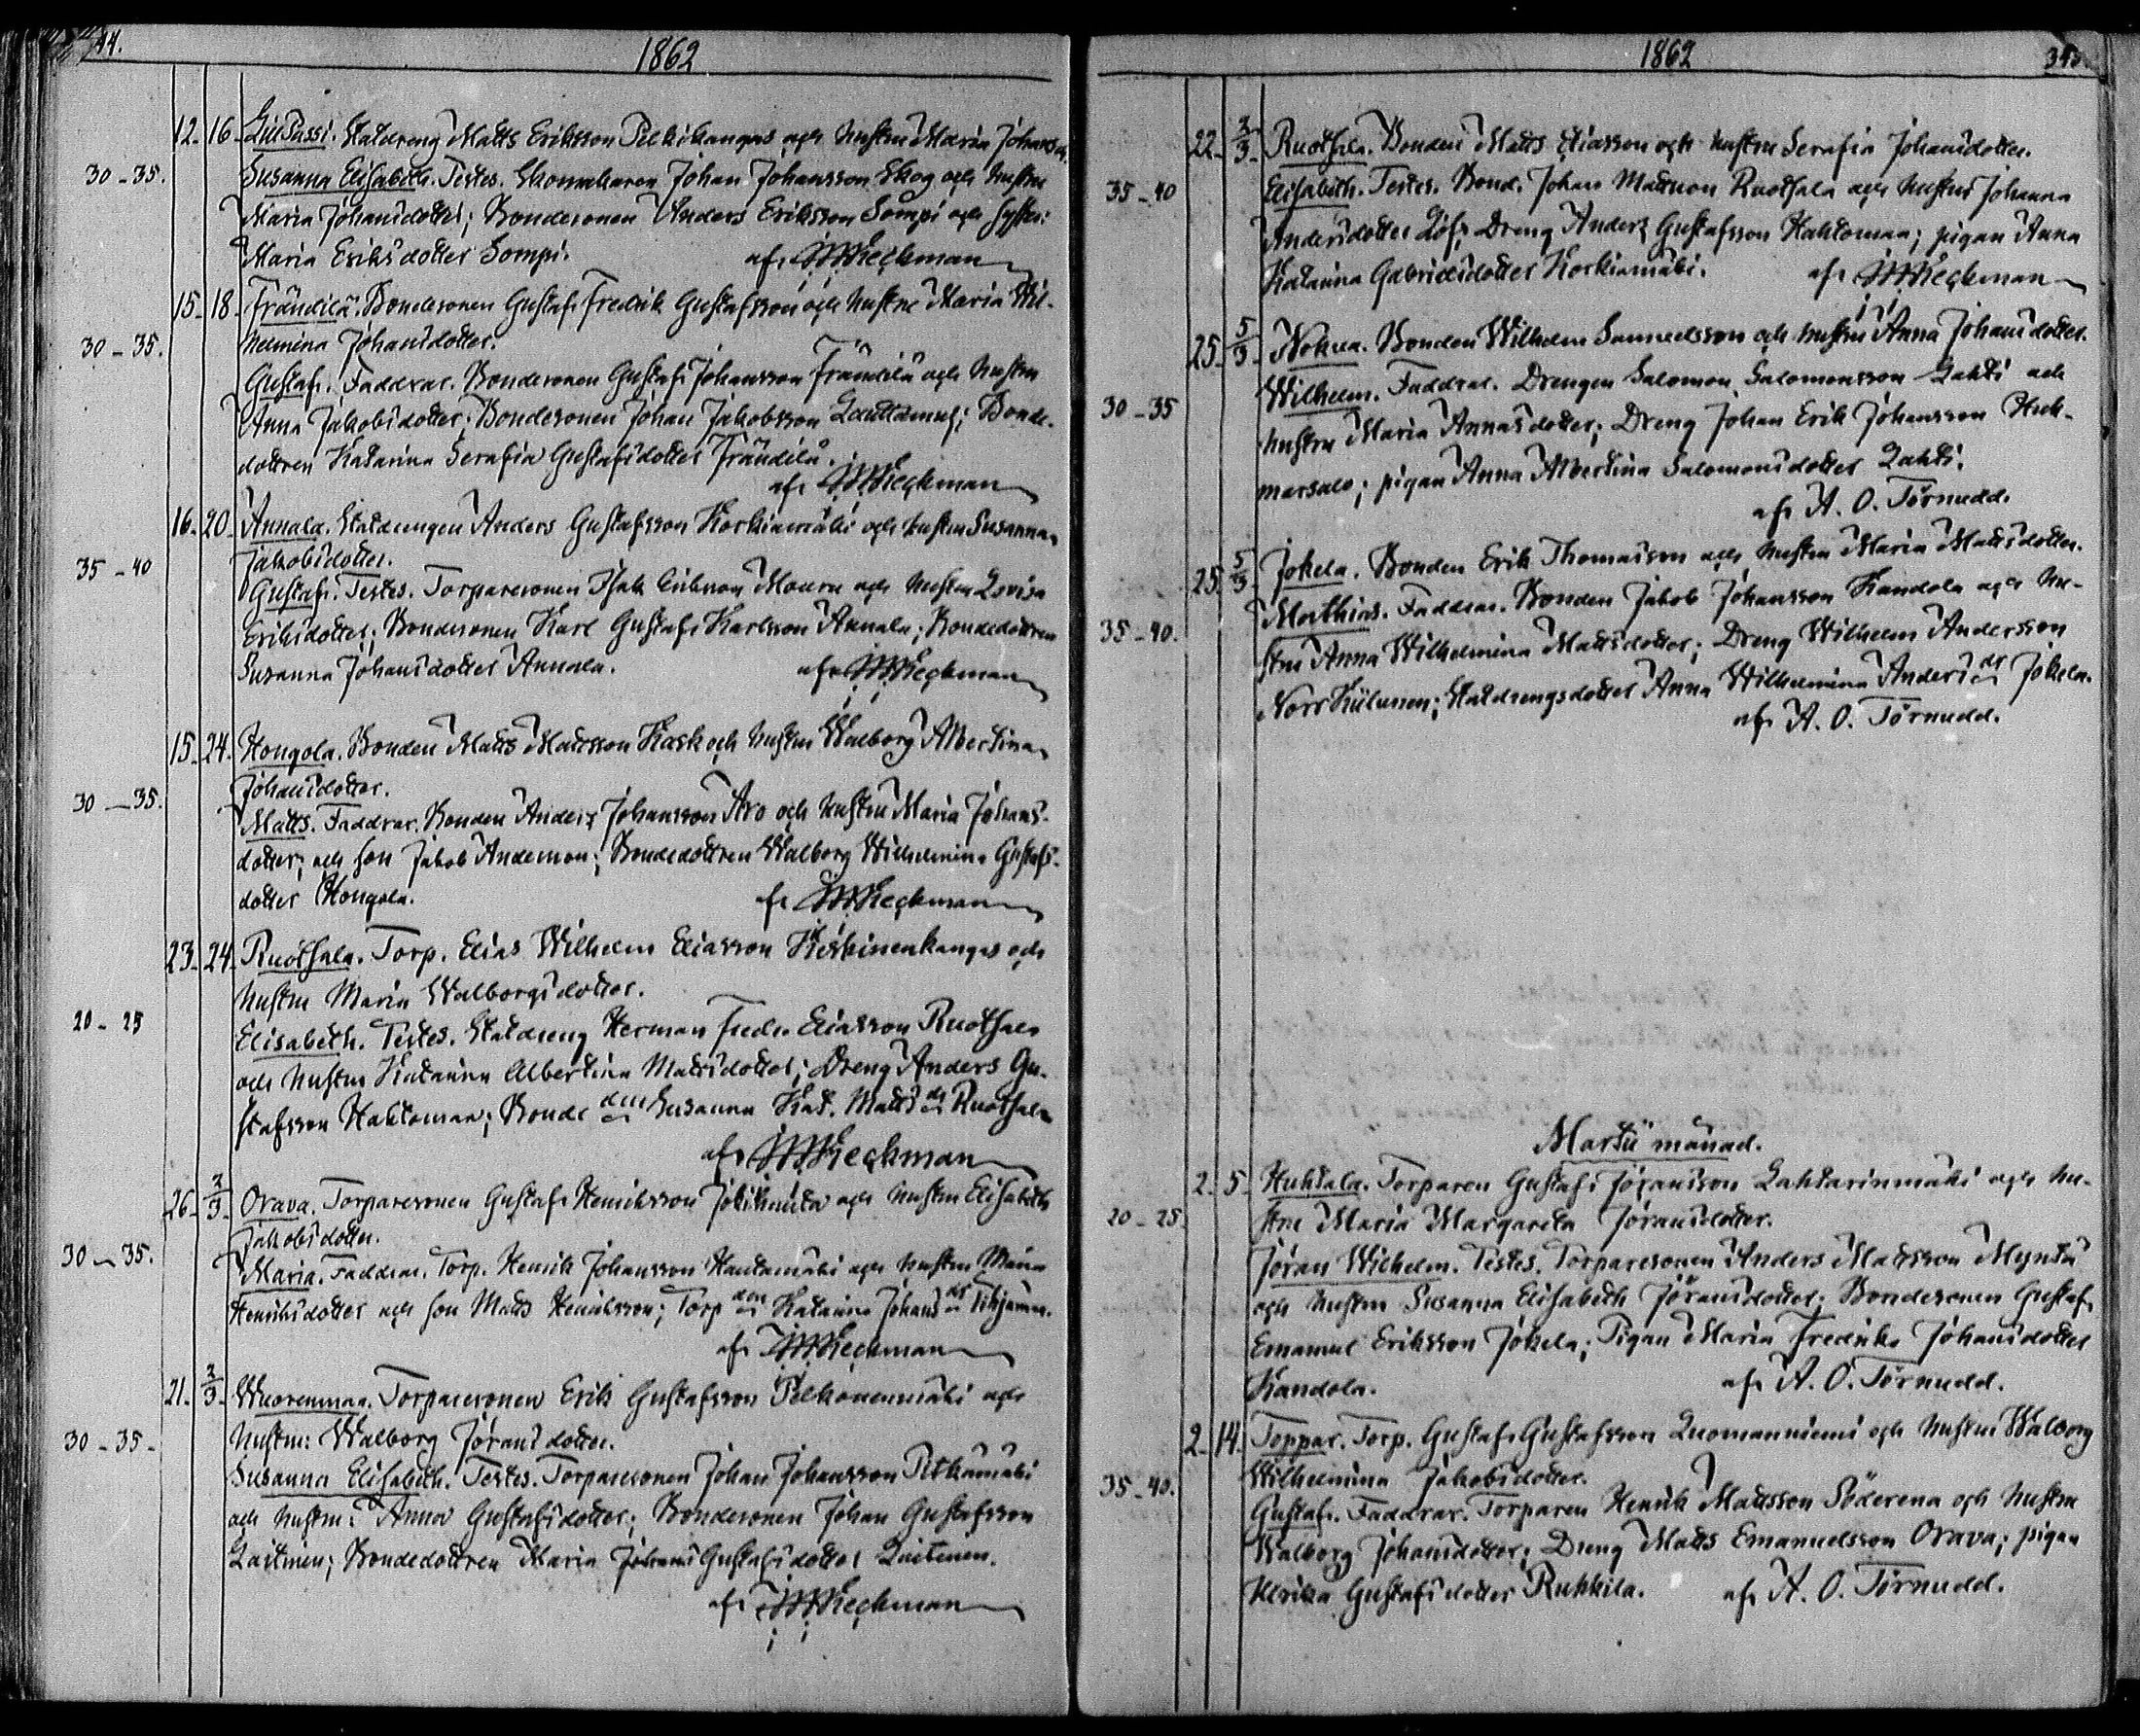 44.
1862
12. 16. Lill Passi. Staldreng Matts Eriksson Pelkikangas och hustru Maria Johansd.
30-35. Susanna Elisabeth. Testes. Skomakaren Johan Johansson Skog och hustru
Maria Johansdotter; Bondesonen Anders Eriksson Sompi och syster:
Maria Eriksdotter Sompi. af
15. 18. Frändilä. Bondesonen Gustaf Fredrik Gustafsson och hustru Maria Wil-
30-35. helmina Johansdotter.
Gustaf. Faddrar. Bondesonen Gustaf Johansson Frändilä och hustru
Anna Jakobsdotter; Bondesonen Johan Jakobsson Bonde-
dottren Katarina Serafia Gustafsdotter Frändilä.
af
16. 20. Annala. Staldrengen Anders Gustafsson Korkiamäki och hustru Susanna
35-40 Jakobsdotter.
Gustaf. Testes. Torparesonen Isak och hustru Lovisa
Eriksdotter; Bondesonen Karl Gustaf Karlsson Annala; Bondedottren
Susanna Johansdotter Annala. af
15. 24. Hongola. Bonden Matts Mattsson Kask och hustru Walborg Albertina
30-35. Johansdotter.
Matts. Faddrar. Bonden Anders Johansson Aro och hustru Maria Johans-
dotter; och son Jakob Andersson; Bondedottren Walborg Wilhelmina Gustafs-
dotter Hongola. af
23. 24. Ruotsala. Torp. Elias Wilhelm Eliasson Keskisenkangas och
hustru Maria Walborgsdotter.
20-25 Elisabeth. Testes. Staldreng Herman Fredr. Eliasson Ruotsala
och hustru Katarina Albertina Mattsdotter; Dreng Anders Gu-
stafsson Hahtomaa; Bonde drn Susanna Kat. Matts dr Ruotsala
af
26. 2/3. Orava. Torparesonen Gustaf Henriksson och hustru Elisabeth
Jakobsdotter.
30-35. Maria. Faddrar. Torp. Henrik Johansson Hautamäki och hustru Maria
Henriksdotter och son Matts Henriksson; Torp drn Katarina Johans dr
af
21. 2/3. Wuorenmaa. Torparesonen Erik Gustafsson Pelkonenmäki och
30-35. hustru: Walborg Jöransdotter.
Susanna Elisabeth. Testes. Torparesonen Johan Johansson Pitkämäki
och hustru: Anna Gustafsdotter; Bondesonen Johan Gustafsson
Laitinen; Bondedottren Maria Johans Gustafsdotter Laitinen.
af
1862
345.
22. 2/3. Ruotsala. Bonden Matts Eliasson och hustru Serafia Johansdotter.
35-40 Elisabeth. Testes. Bond. Johan Mattsson Ruotsala och hustru Johanna
Andersdotter Dreng Anders Gustafsson Hahtomaa; pigan Anna
Katarina Gabrielsdotter Korkiamäki. af
25. 5/3. Nokua. Bonden Wilhelm Samuelsson och hustru Anna Johansdotter.
30-35 Wilhelm. Faddrar. Drengen Salomon Salomonsson Lahti och
hustru Maria Annasdotter; Dreng Johan Erik Johansson Huh-
marsalo; pigan Anna Albertina Salomonsdotter Lahti.
af A. O. Törnudd.
25. 5/3. Jokela. Bonden Erik Thomasson och hustru Maria Mattsdotter.
35-40. Mathias. Faddrar. Bonden Jakob Johansson Kandola och hu-
stru Anna Wilhelmina Mattsdotter; Dreng Wilhelm Andersson
Norr Staldrengsdotter Anna Wilhelmina Anders dr Jokela.
af A. O. Törnudd.
Martii månad.
2. 5. Huhtala. Torparen Gustaf Jöransson Lahtarinmäki och hu-
20-25. stru Maria Margareta Jöransdotter.
Jöran Wilhelm. Testes. Torparesonen Anders Mattsson
och hustru Susanna Elisabeth Jöransdotter; Bondesonen Gustaf
Emanuel Eriksson Jokela; Pigan Maria Fredrika Johansdotter
Kandola. af A. O. Törnudd.
2. 14. Toppar. Torp. Gustaf Gustafsson Luomanniemi och hustru Walborg
35-40. Wilhelmina Jakobsdotter.
Gustaf. Faddrar. Torparen Henrik Mattsson Söderena och hustru
Walborg Johansdotter; Dreng Matts Emanuelsson Orava; pigan
Ulrika Gustafsdotter Ruhkila. af A. O. Törnudd.